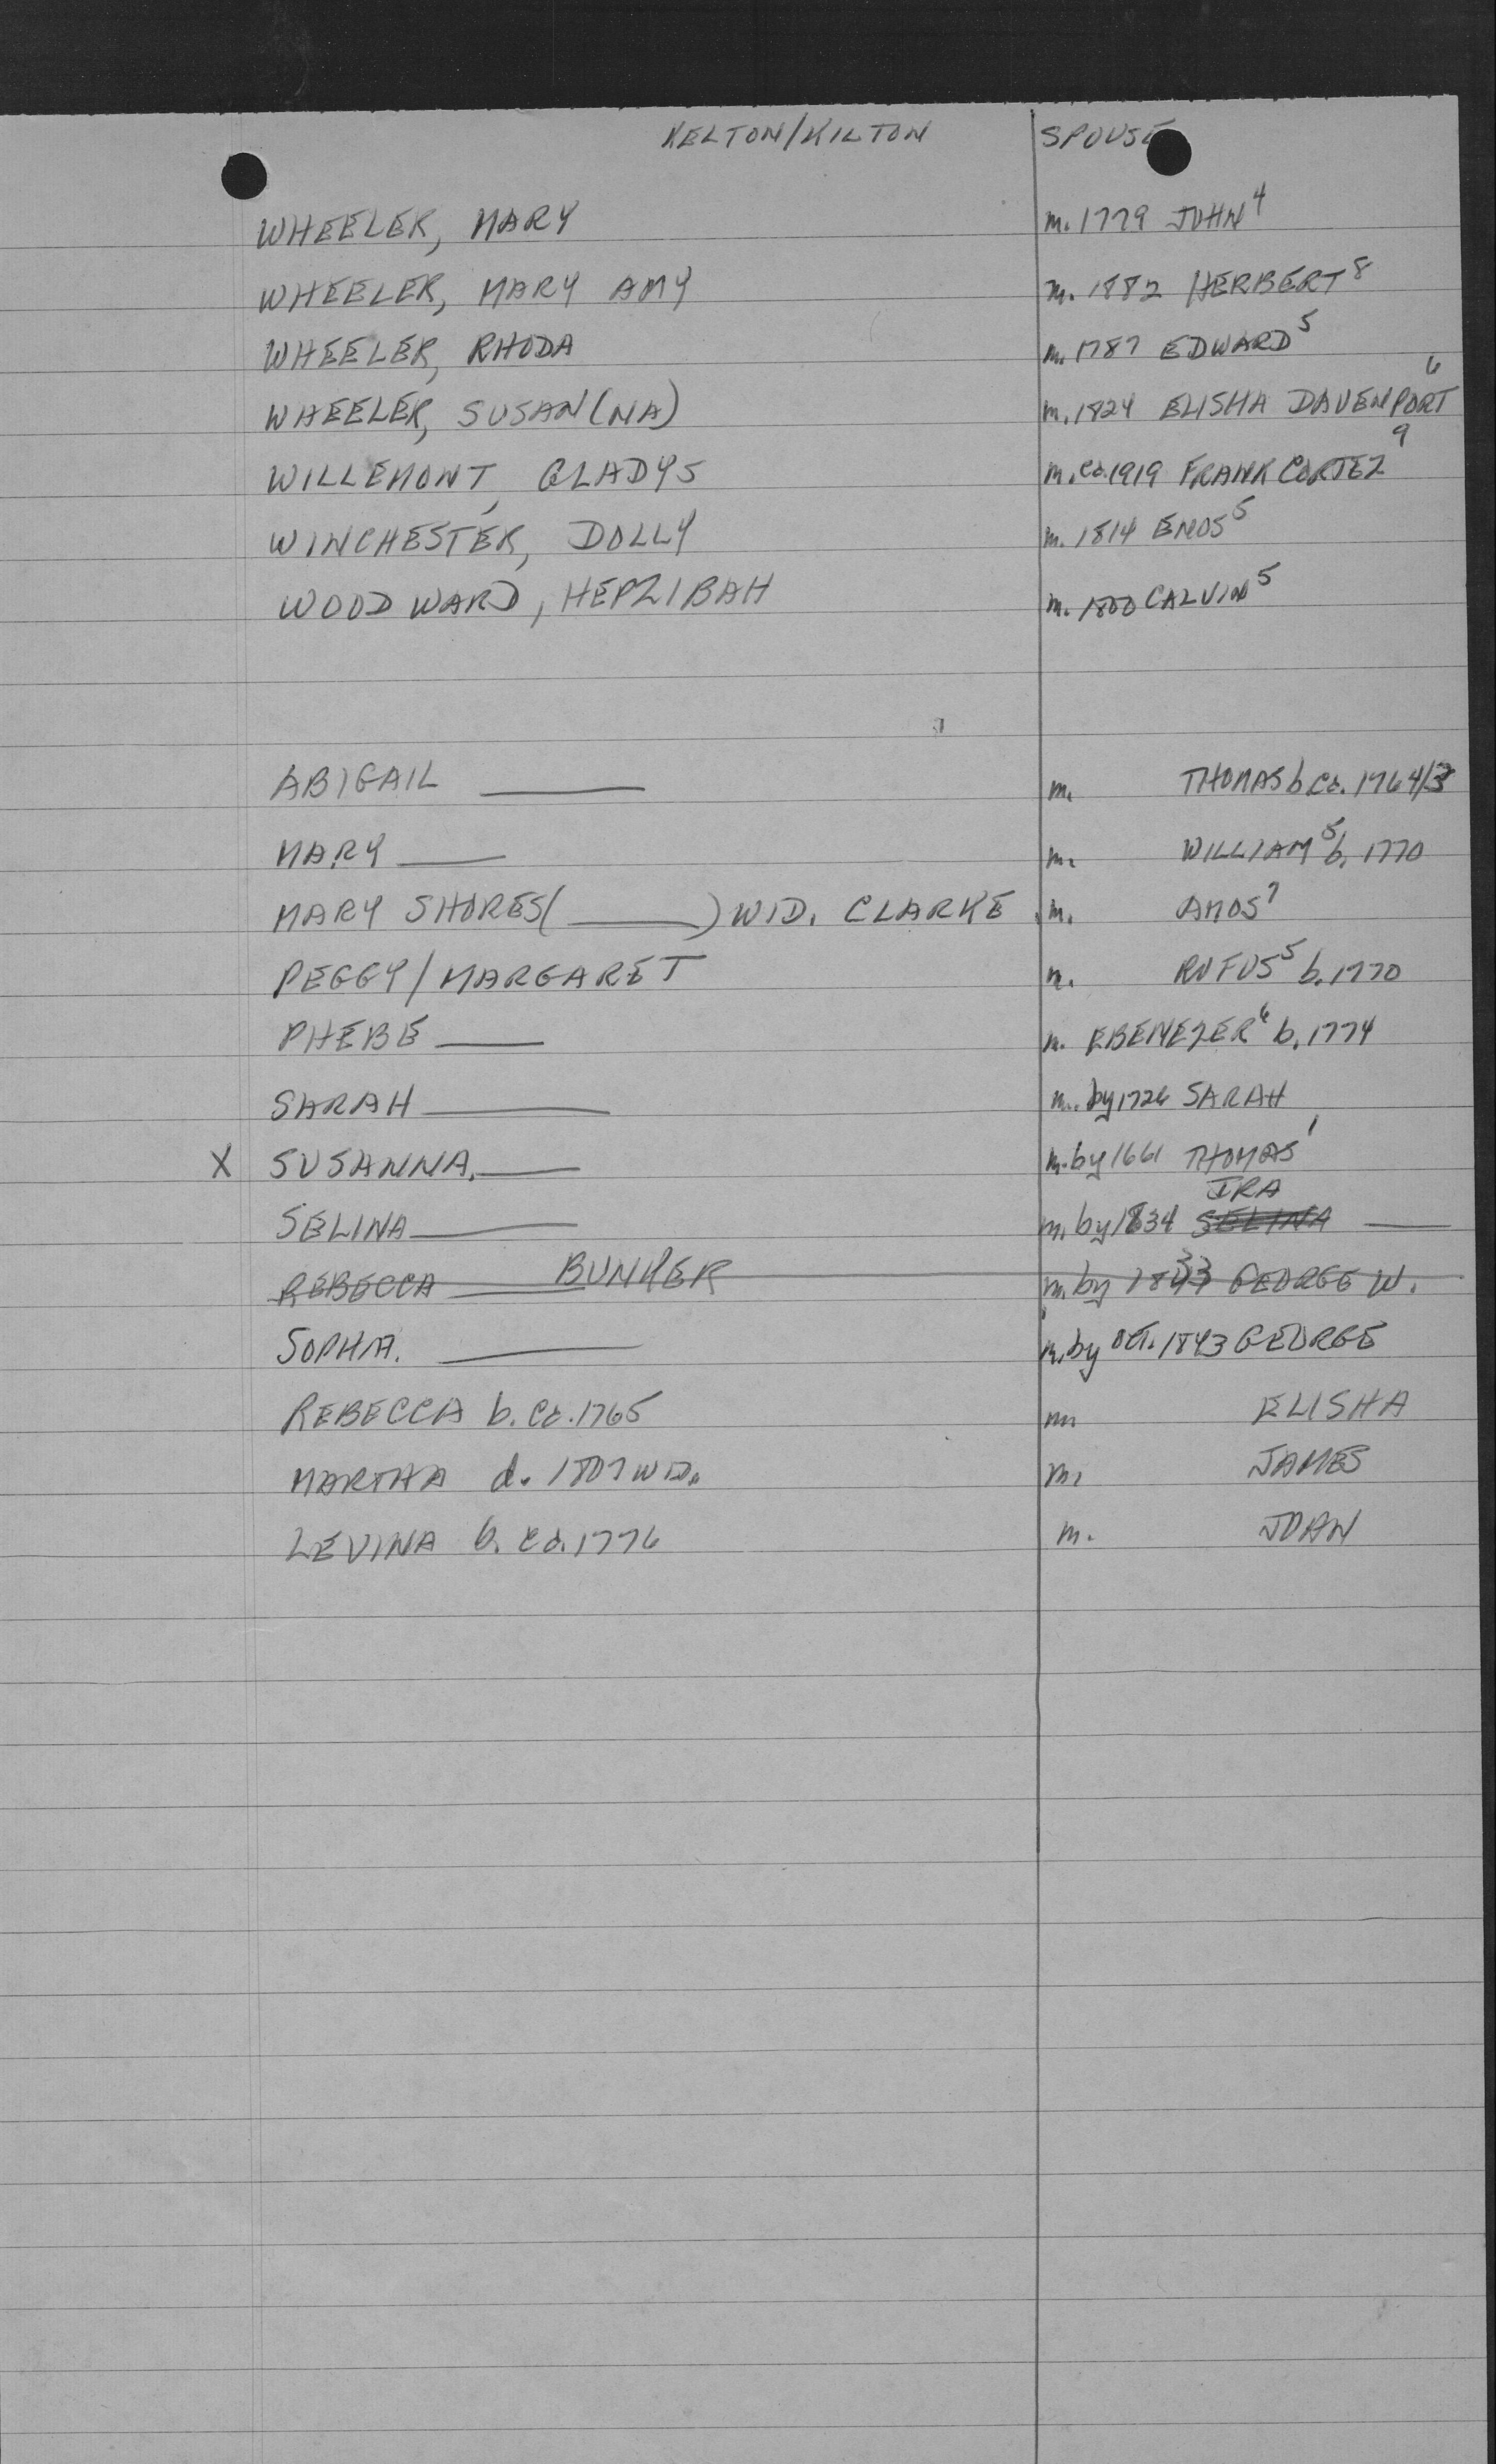 KELTON/KILTON SPOUSE
WHEELER, MARY m. 1779 JOHN⁴
WHEELER, MARY AMY m. 1882 HERBERT⁸
WHEELER, RHODA m. 1787 EDWARD⁵
WHEELER, SUSAN(NA) m. 1824 ELISHA DAVENPORT⁶
WILLEMONT, GLADYS m. ca. 1919 FRANK CORTEZ⁹
WINCHESTER, DOLLY m. 1814 ENOS⁵
WOODWARD, HEPZIBAH m. 1800 CALVIN⁵
ABIGAIL ____ m. THOMAS b ca. 1764/3
MARY ____ m. WILLIAM⁵ b. 1770
MARY SHORES( ____ ) WID. CLARKE m. AMOS⁷
PEGGY/MARGARET m. RUFUS⁵ b. 1770
PHEBE ____ m. EBENEZER⁶ b. 1774
SARAH ____ m. by 1726 SARAH
X SUSANNA. ____ m. by 1661 THOMAS¹
IRA
SELINA ____ m. by 1834 SELINA ____
REBECCA ____ BUNKER m. by 1833 GEORGE W.
SOPHIA. ____ m. by OCT. 1843 GEORGE
REBECCA b. ca. 1765 m. ELISHA
MARTHA d. 1807 WID. m. JAMES
LEVINA b. ca. 1776 m. JOHN